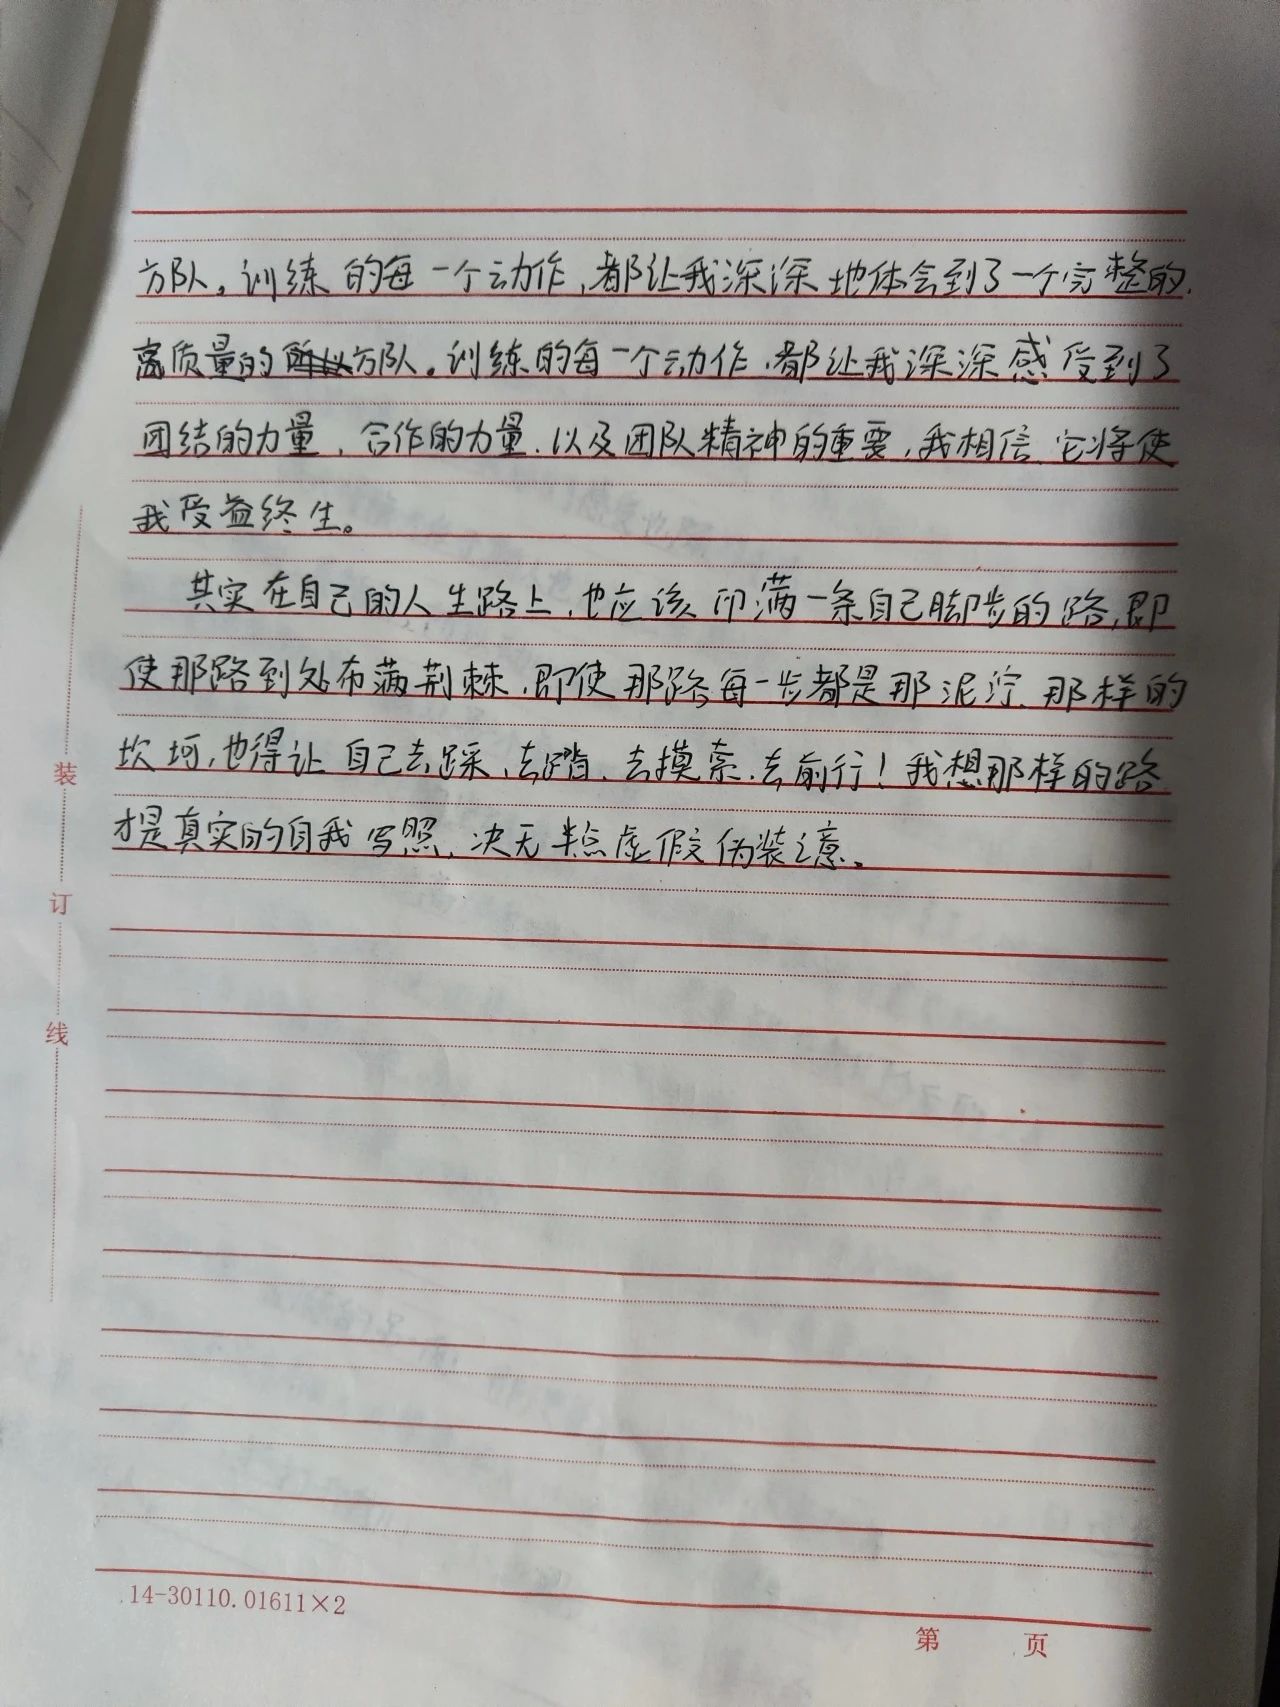 方队。训练的每一个动作,都让我深深地体会到了一个完整的、
高质量的方队。训练的每一个动作,都让我深深感受到了
团结的力量、合作的力量、以及团队精神的重要,我相信它将使
我受益终生。
其实在自己的人生路上,也应该印满一条自己脚步的路,即
使那路到处布满荆棘,即使那路每一步都是那泥泞、那样的
坎坷,也得让自己去踩、去踏、去摸索、去前行!我想那样的路
才是真实的自我写照,决无半点虚假伪装之意。
装
订
线
14-30110.01611×2
第 页